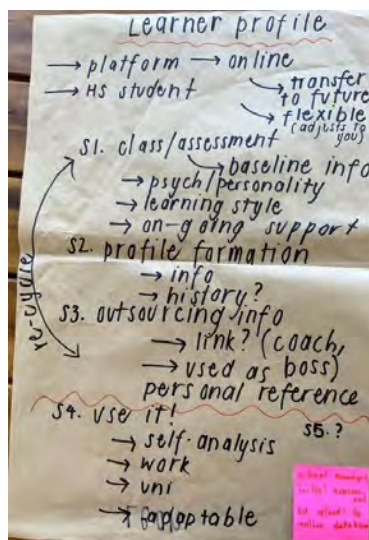 Learner profile
→ platform → online
→ transfer to future
→ HS student
→ flexible (adjusts to you)
S1. class/assessment
→ baseline info
→ psych/personality
→ learning style
→ on-going support
S2. profile formation
→ info
→ history?
S3. outsourcing info
→ link? (coach,
→ used as boss)
personal reference
re-cycle
S4. use it!
S5.?
→ self-analysis
→ work
→ uni
→ adaptable